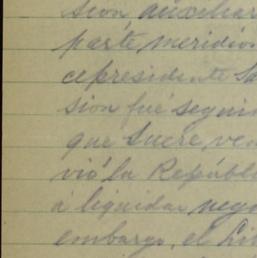 sion auxiliar
parte meridio
cepresidente Sa
sion fué segui
que Sucre, ven
vió la Repúbli
á liquidar nego
embargo, el Li